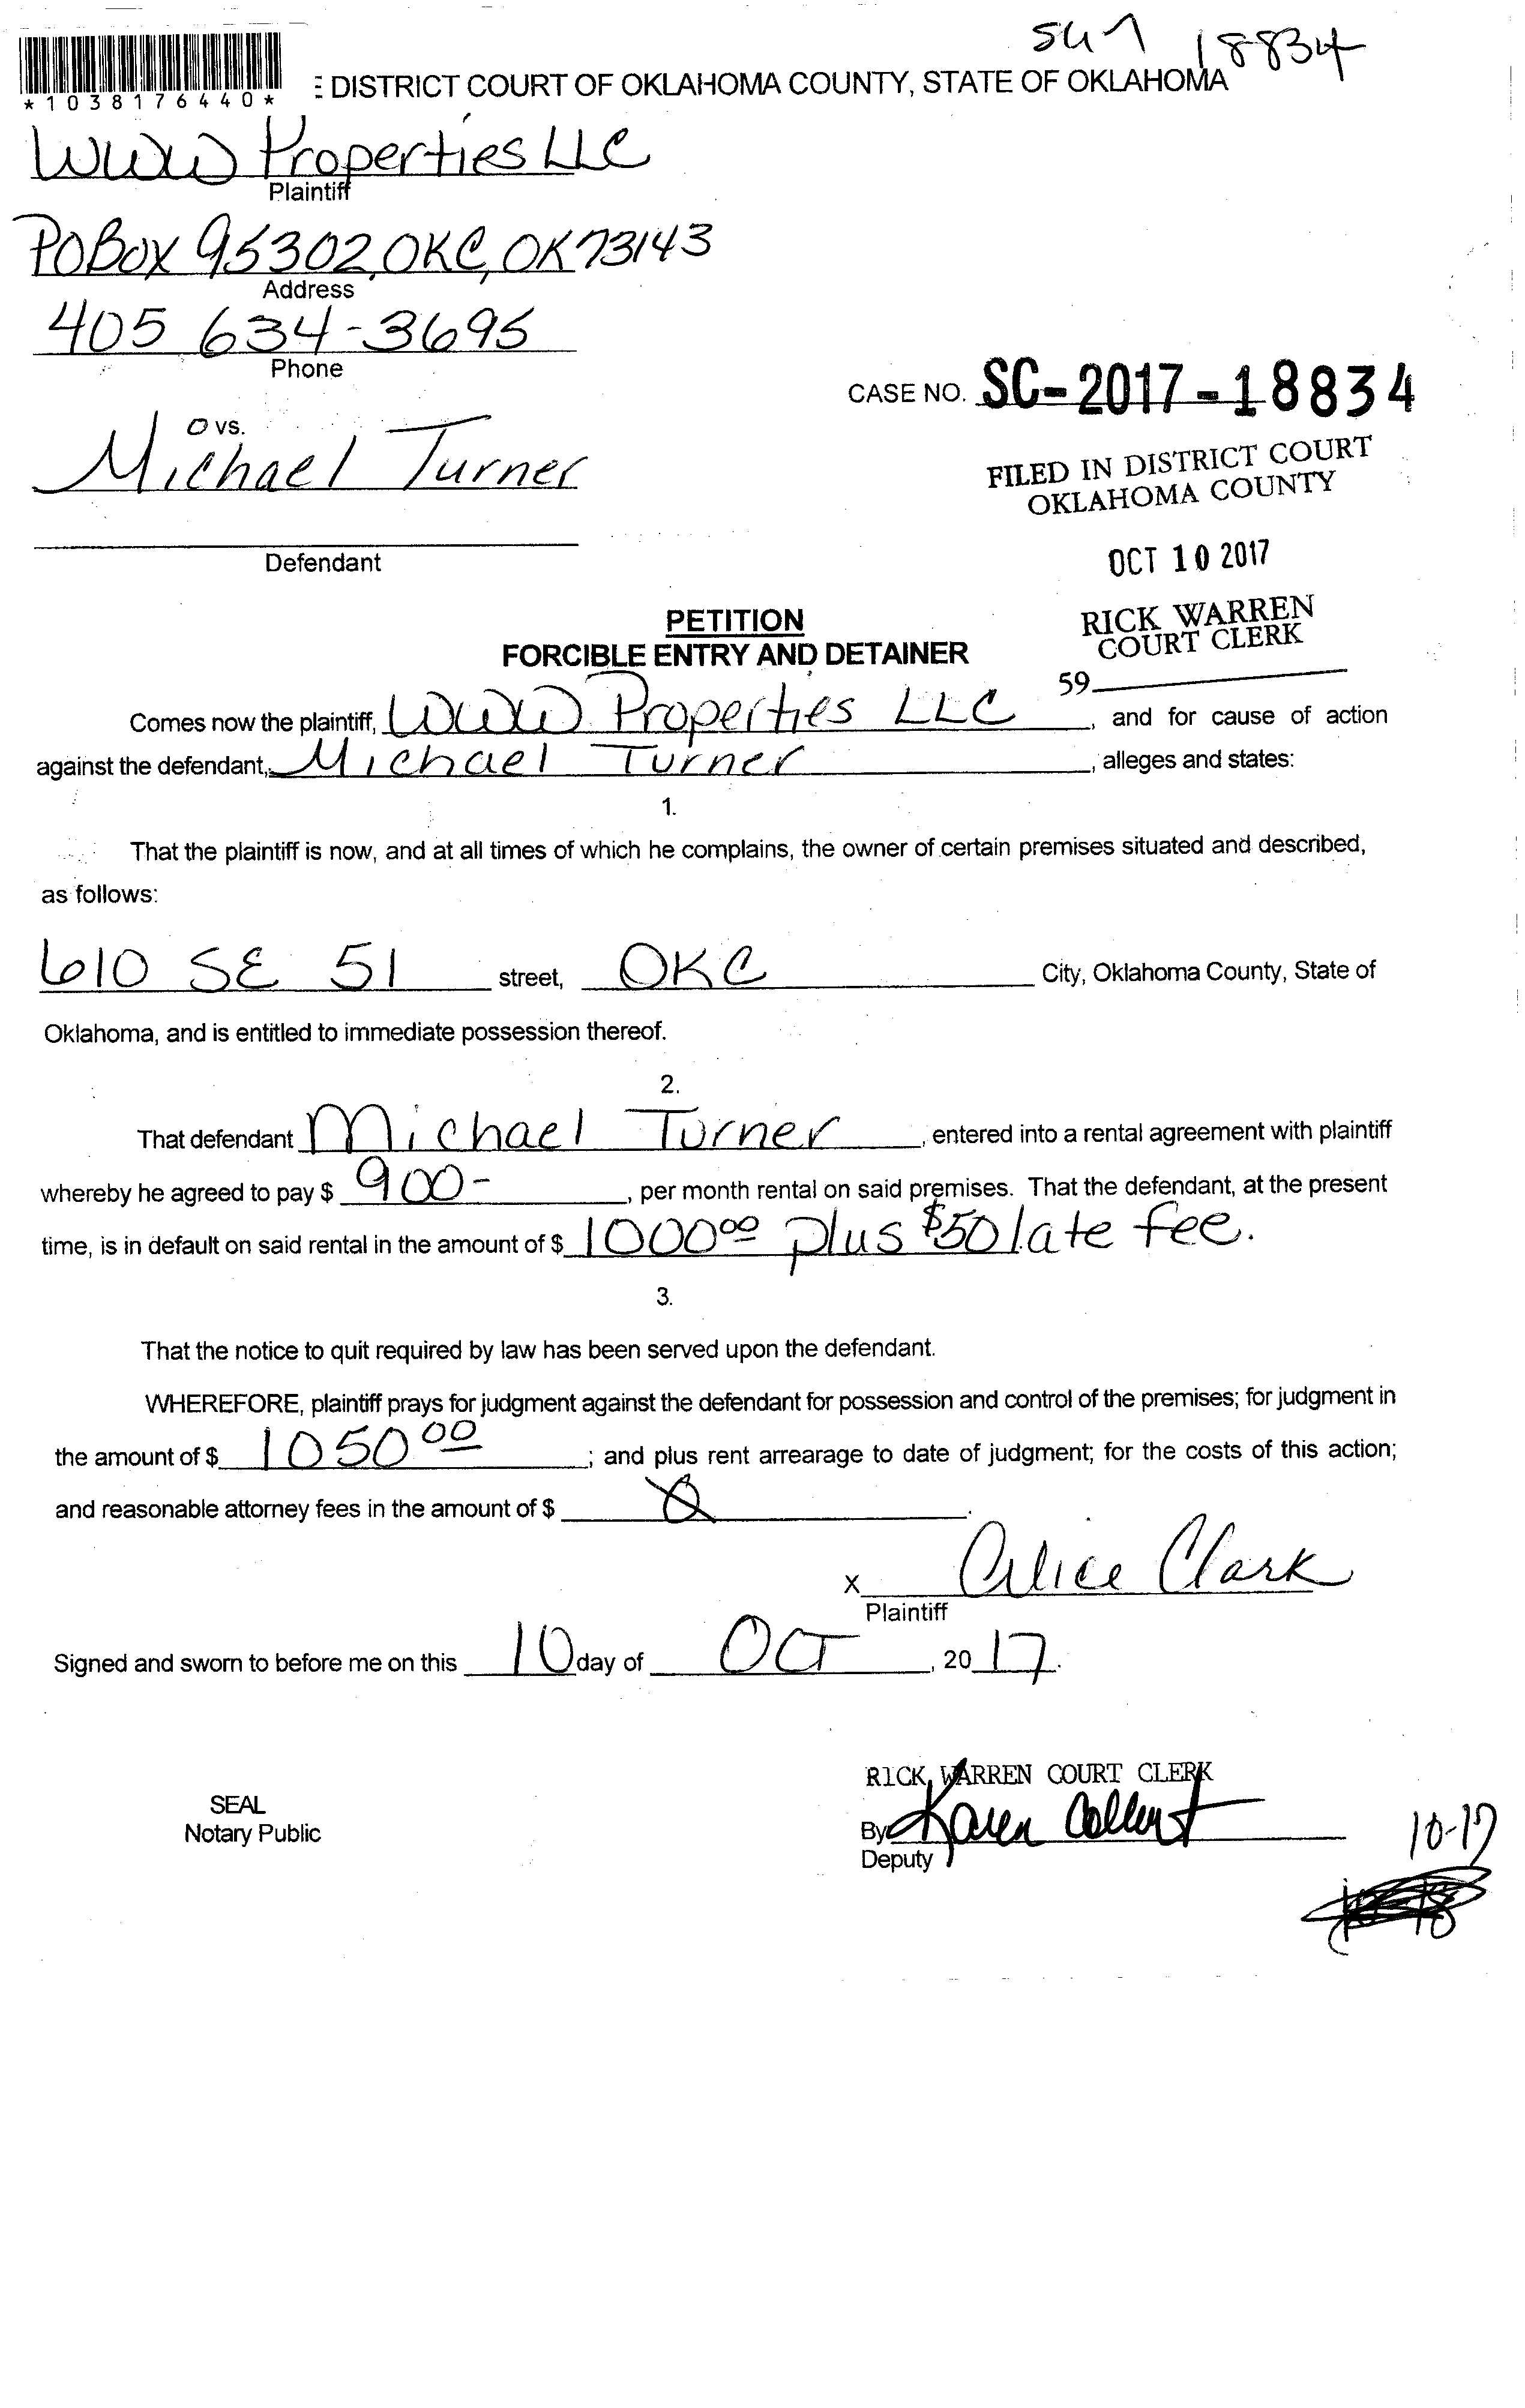 SC17 18834
*1038176440*
E DISTRICT COURT OF OKLAHOMA COUNTY, STATE OF OKLAHOMA
WWW Properties LLC
Plaintiff
PO Box 95302, OKC, OK 73143
Address
405 634-3695
Phone
CASE NO. SC-2017-18834
vs.
Michael Turner
FILED IN DISTRICT COURT
OKLAHOMA COUNTY
Defendant
OCT 10 2017
RICK WARREN
COURT CLERK
59
PETITION
FORCIBLE ENTRY AND DETAINER
Comes now the plaintiff, WWW Properties LLC, and for cause of action
against the defendant, Michael Turner, alleges and states:
1.
That the plaintiff is now, and at all times of which he complains, the owner of certain premises situated and described,
as follows:
610 SE 51 street, OKC City, Oklahoma County, State of
Oklahoma, and is entitled to immediate possession thereof.
2.
That defendant Michael Turner, entered into a rental agreement with plaintiff
whereby he agreed to pay $ 900-, per month rental on said premises. That the defendant, at the present
time, is in default on said rental in the amount of $ 1000 00 plus $50 late fee.
3.
That the notice to quit required by law has been served upon the defendant.
WHEREFORE, plaintiff prays for judgment against the defendant for possession and control of the premises; for judgment in
the amount of $ 1050 00; and plus rent arrearage to date of judgment; for the costs of this action;
and reasonable attorney fees in the amount of $ 0.
x Alice Clark
Plaintiff
Signed and sworn to before me on this 10 day of OCT, 20 17.
RICK WARREN COURT CLERK
SEAL
Notary Public
By Karen Collert
Deputy
10-17